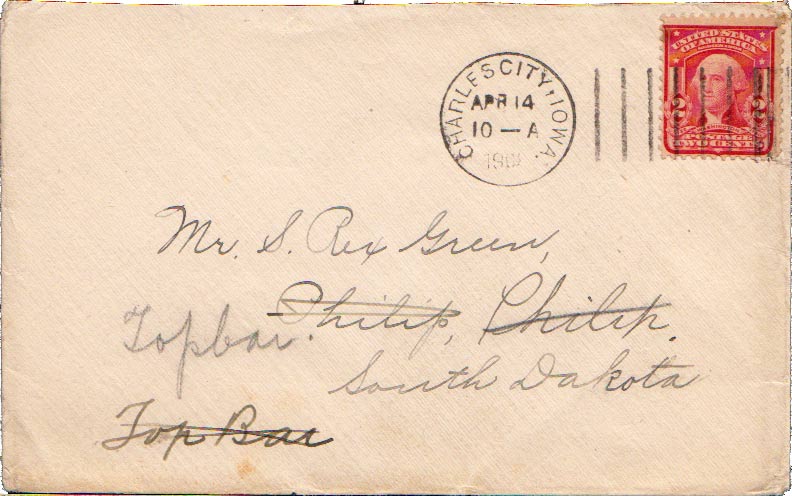 CHARLES CITY, IOWA.
APR 14
10 — A
UNITED STATES
OF AMERICA
2 2
POSTAGE
TWO CENTS
Mr. S. Rex Green,
Philip, Philip.
Topbar.
South Dakota
Top Bar